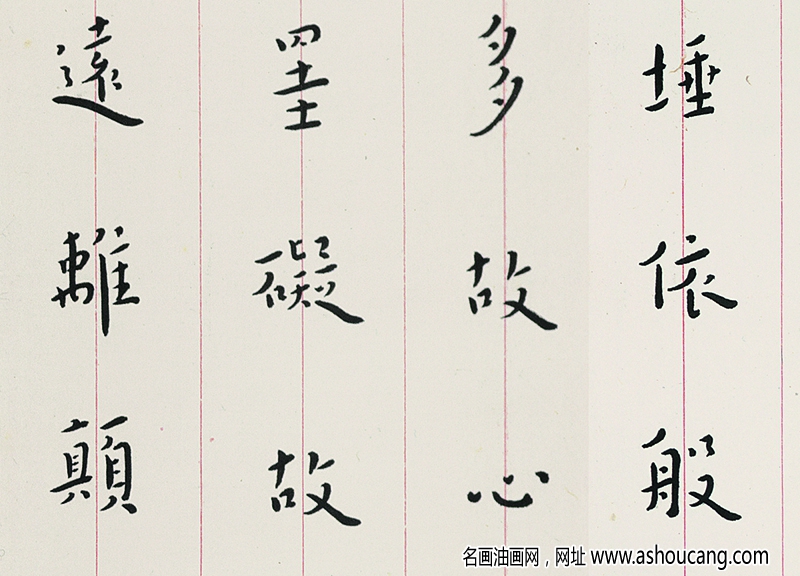 埵依般
多故心
罣礙故
遠離顛
名画油画网，网址 www.ashoucang.com